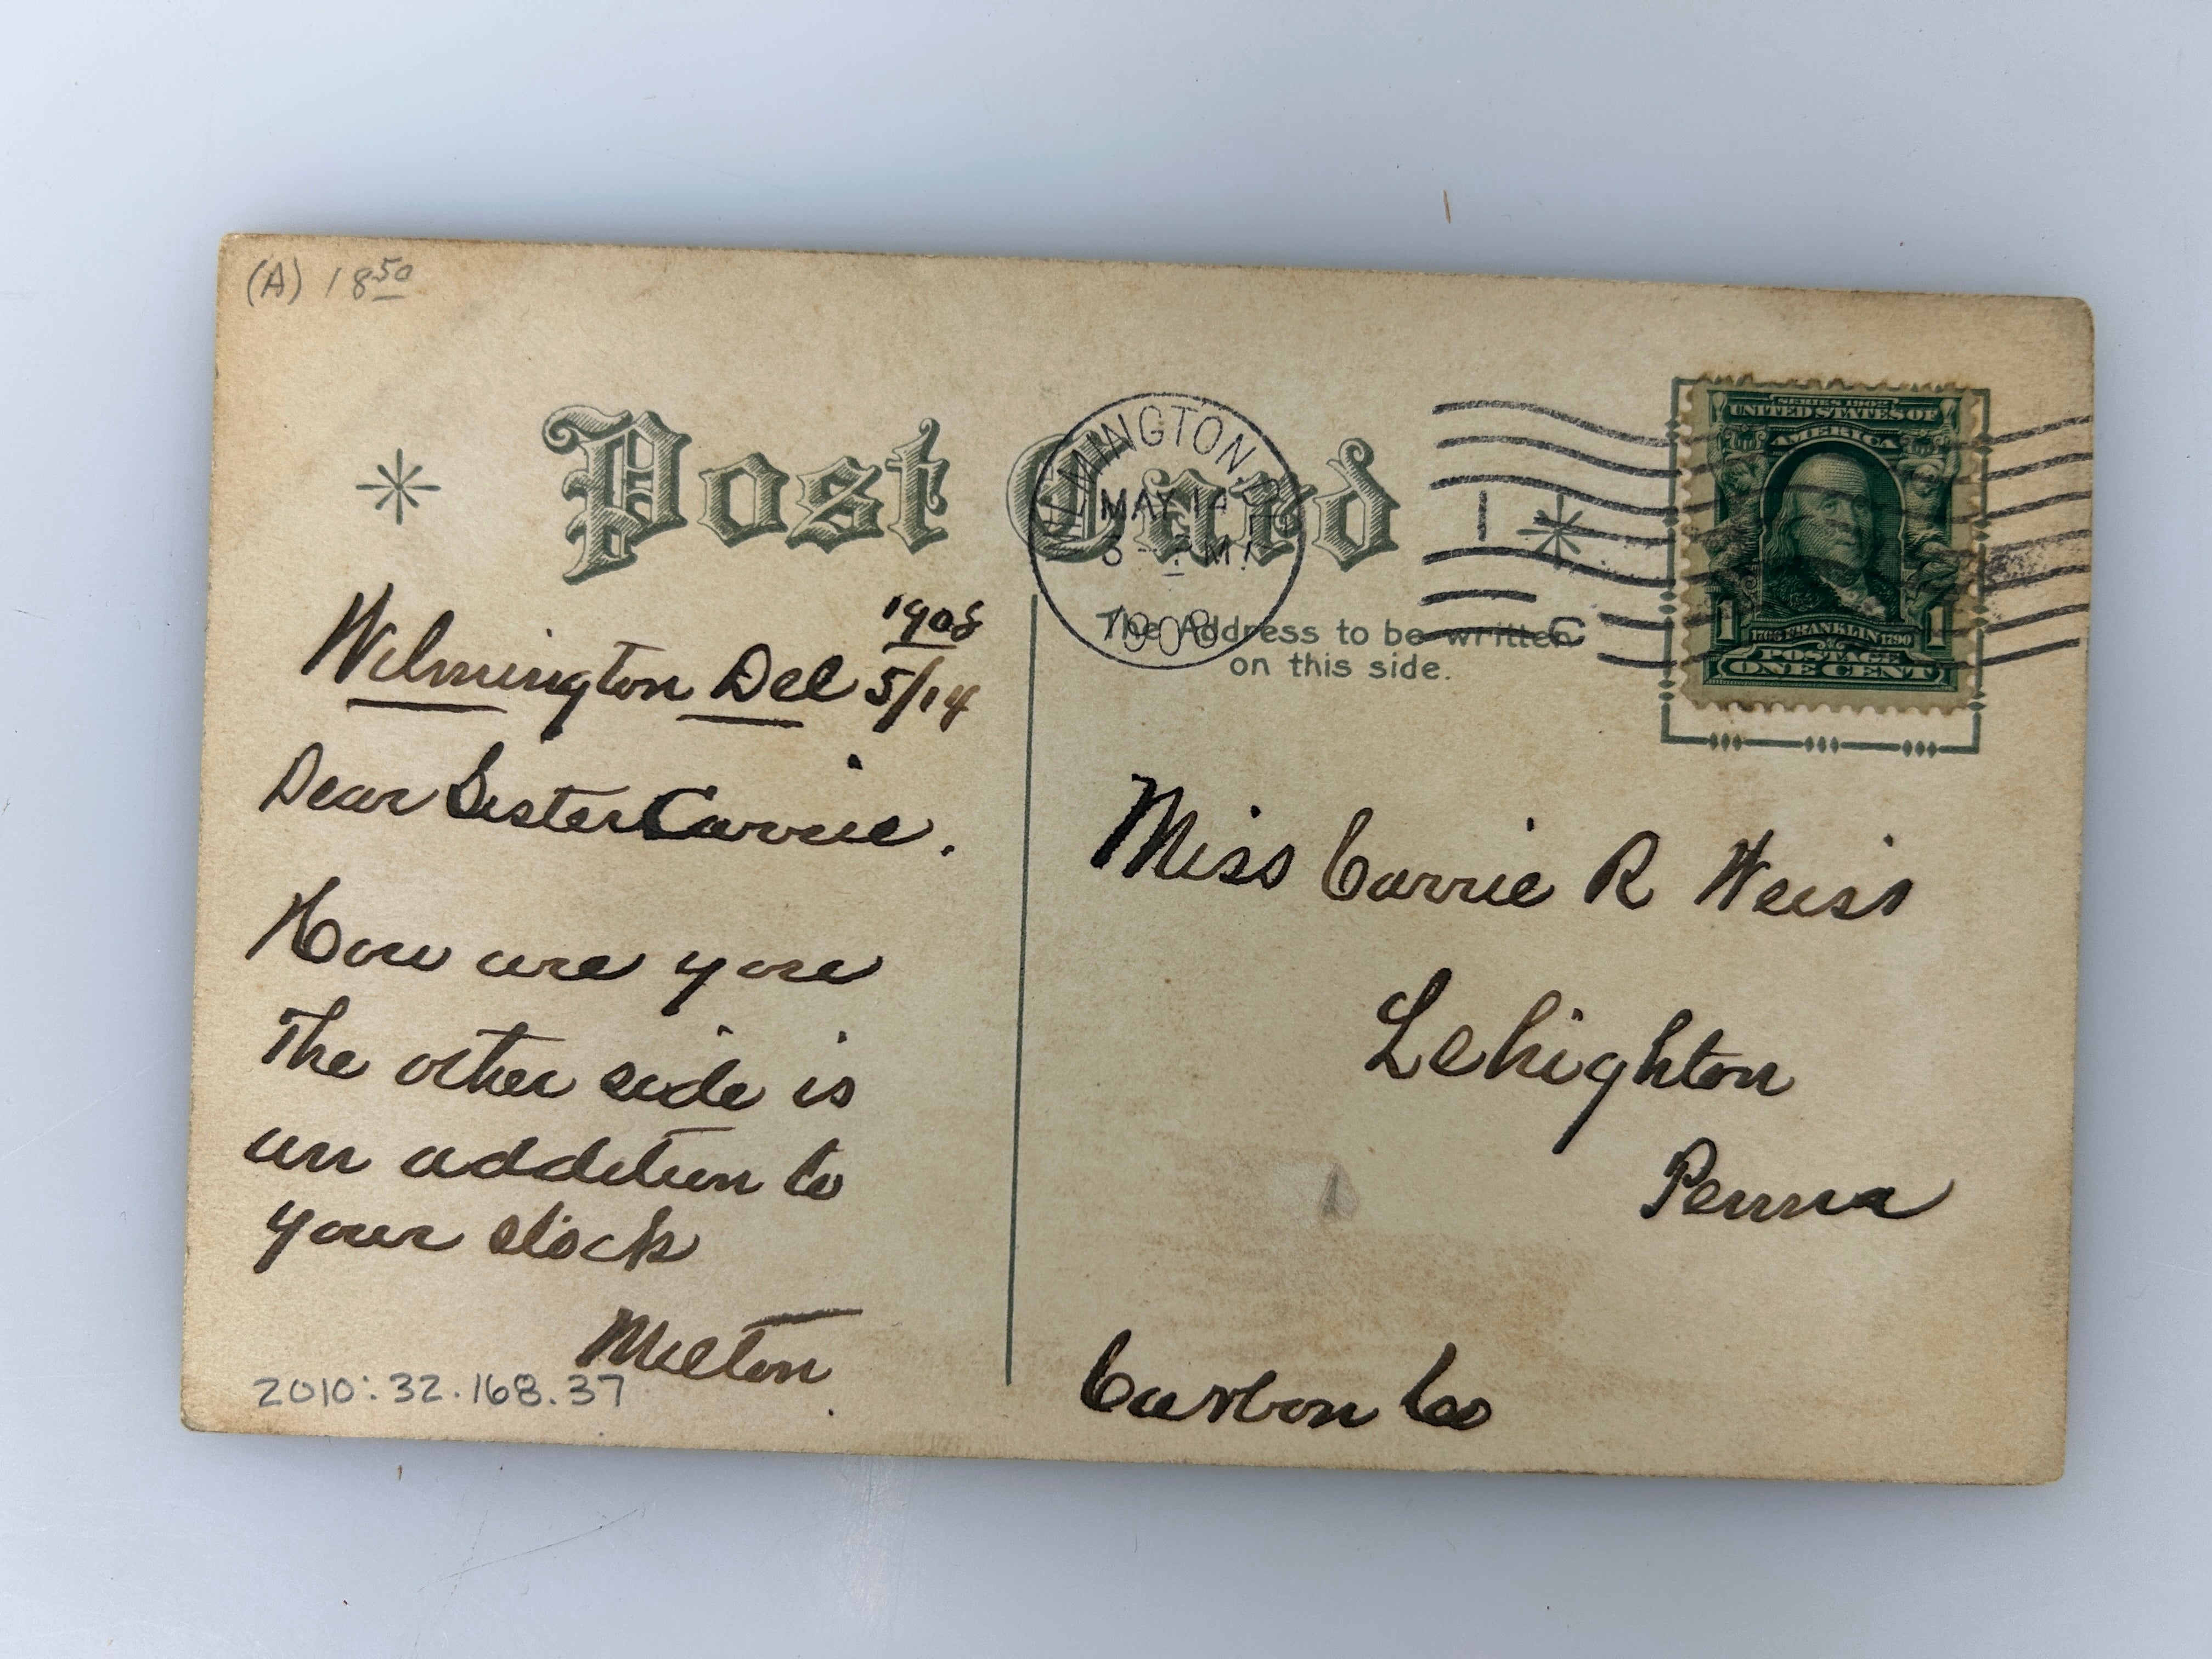 (A) 18 50
Post Card
WILMINGTON,
MAY 14
1908
1
SERIES 1902
UNITED STATES OF
AMERICA
1 1706 FRANKLIN 1790 1
POSTAGE
ONE CENT
The Address to be written
on this side.
1908
Wilmington Del 5/14
Dear Sister Carrie.
How are you
The other side is
an addition to
your stock
Milton
2010:32.168.37
Miss Carrie R Weiss
Lehighton
Penna
Carbon Co